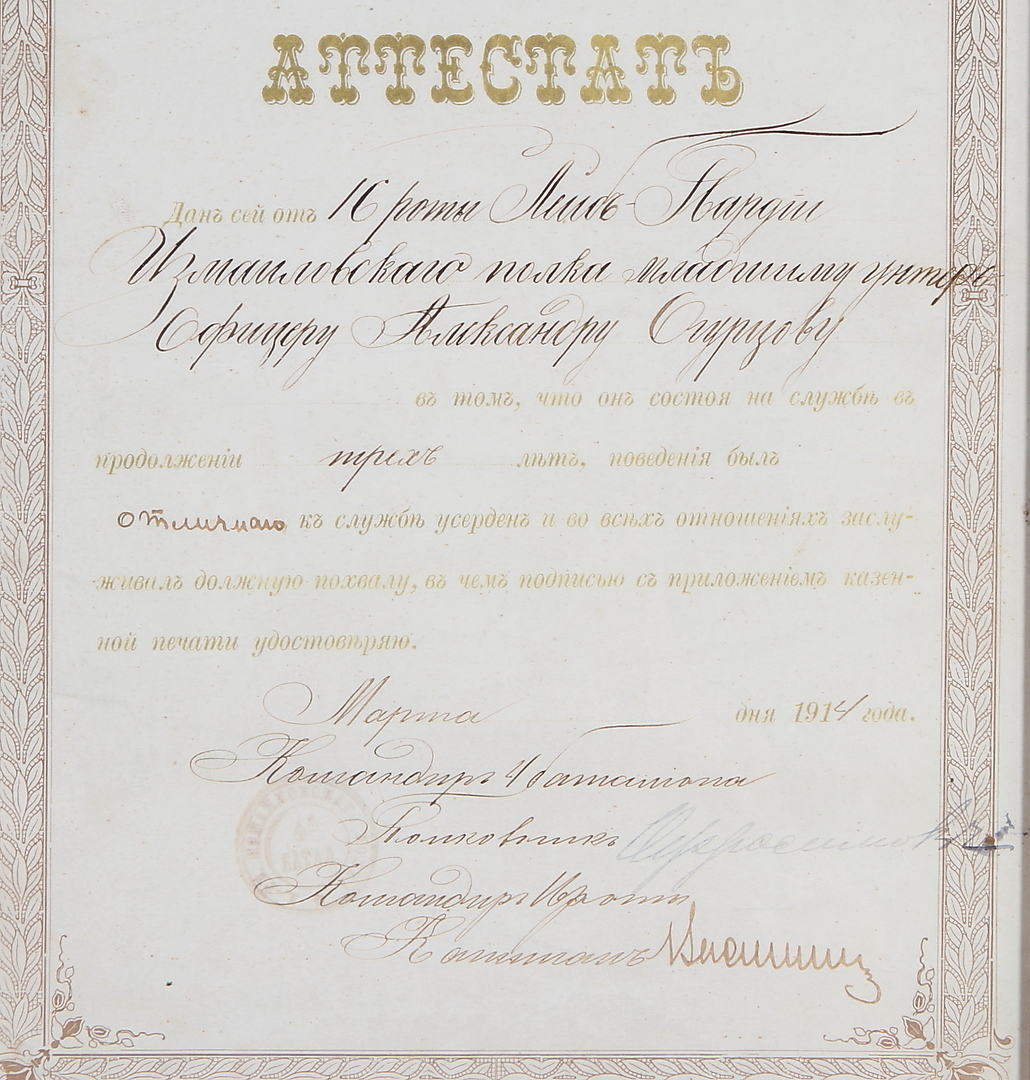 АТТЕСТАТЪ
Данъ сей отъ 16 роты Лейбъ-Гвардiи
Измаиловскаго полка младшему унтеръ
Офицеру Александру Огурцову
въ томъ, что онъ состоя на службѣ въ
продолженiи трехъ лѣтъ, поведенiя былъ
отличнаго къ службѣ усерденъ и во всѣхъ отношенiяхъ заслу-
живалъ должную похвалу, въ чемъ подписью съ приложенiемъ казен-
ной печати удостовѣряю.
Марта дня 1914 года.
Командиръ 4 баталiона
Полковникъ
Командиръ 16 роты
Капитанъ